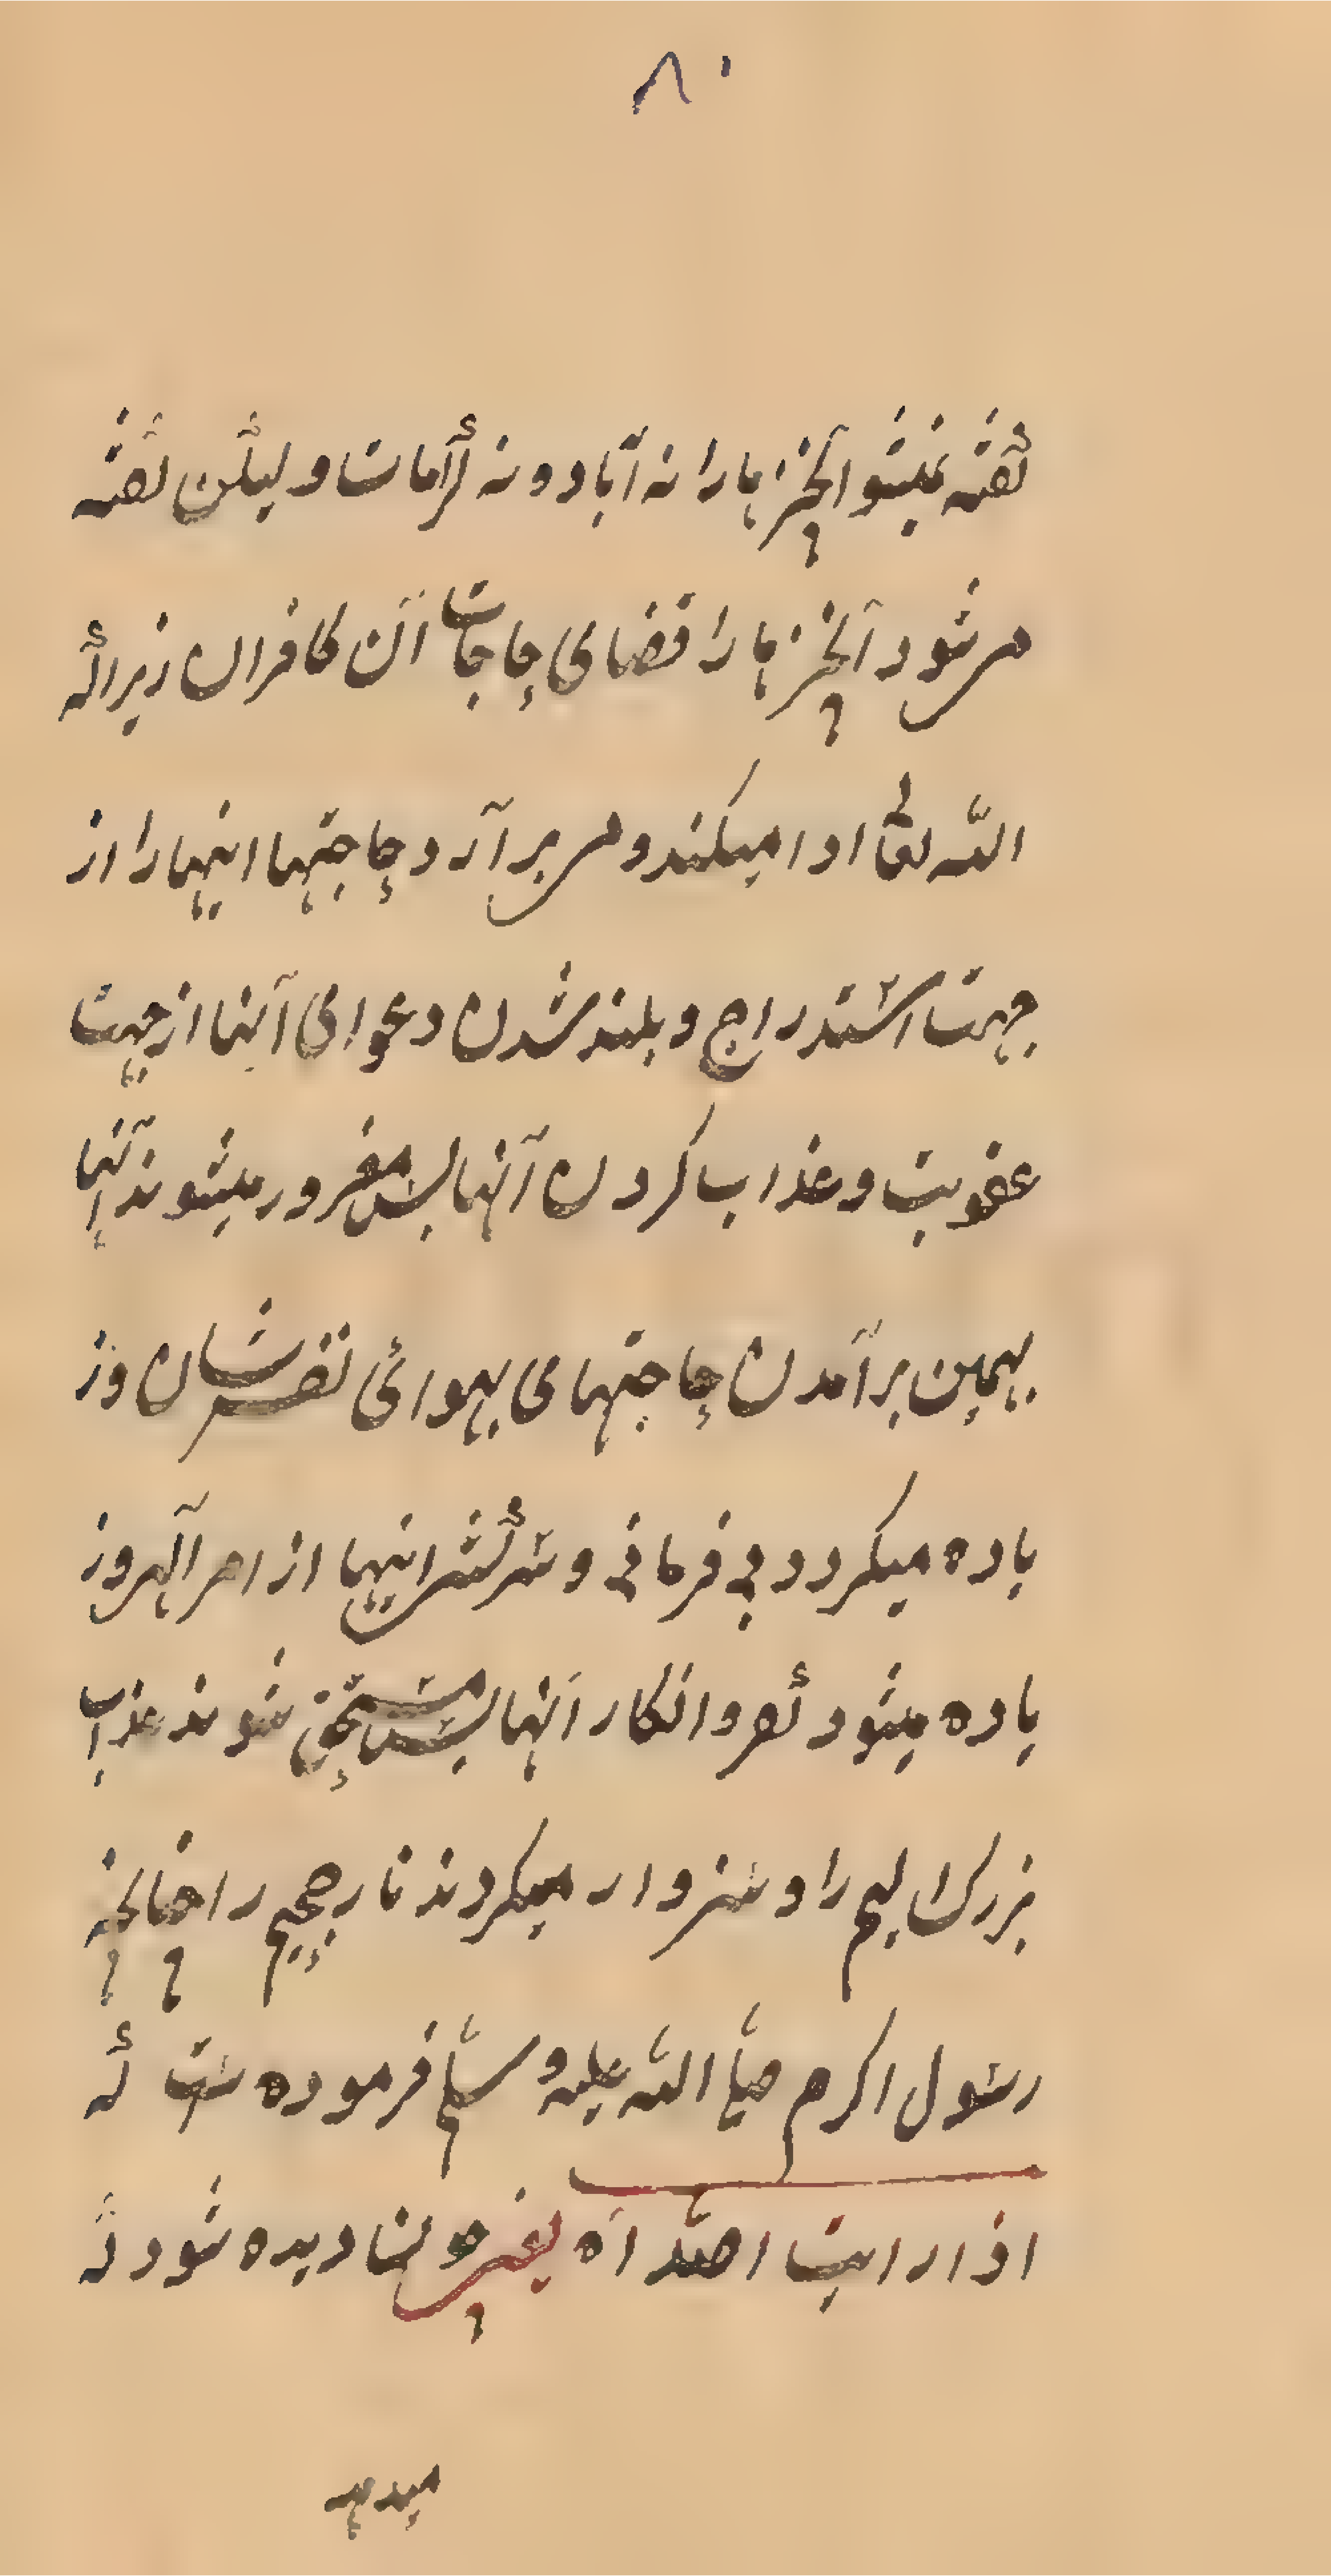 ۸۰
گفته نمیشو آنچیزها را نه آیاد و نه کرامات و لیکن گفته
می شود آنچیزها را قضای حاجات آن کافران زیراکه
الله تعالی ادا میکند و می برآرد حاجتها اینها را از
جهت استدراج و بلند شدن دعوای آنها از جهت
عقوبت و عذاب کردن آنها پس مغرور میشوند آنها
بهمین برآمدن حاجتهای بهوائی نفس شان و ز
یاده میکردد بی فرمانی و سرکشی اینها از امر آلهی و ز
یاده میشود کفر و انکار آنها پس مستحق شوند عذاب
بزرک الیم را و سزوار میکردند نار جحیم را چنانچه
رسول اکرم صلی الله علیه و سلم فرموده ست که
اذا رایت احدا آه یعنی چونا دیده شود که
میدهد